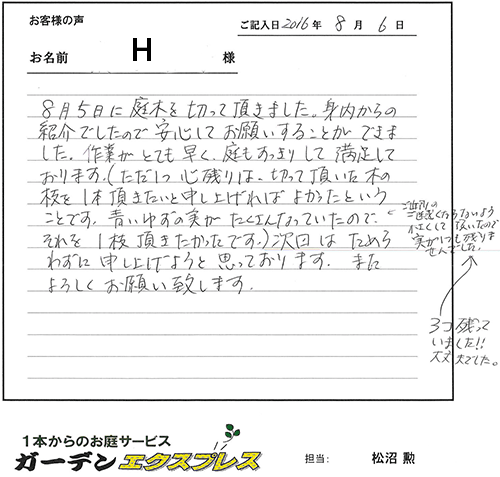 お客様の声
ご記入日 2016年 8月 6日
お名前 H 様
8月5日に庭木を切って頂きました。身内からの
紹介でしたので安心してお願いすることができま
した。作業がとても早く、庭もすっきりして満足して
おります。(ただ1つ心残りは、切って頂いた木の
枝を1本頂きたいと申し上げればよかったという
ことです。青いゆずの実がたくさんなっていたので、
それを1枝頂きたかったです。)次回はためら
わずに申し上げようと思っております。また
よろしくお願い致します。
ご近所の
ご迷惑にならないよう
頂いたので
実が1つも残りま
せんでした。
3つ残って
いました!!
大丈夫でした。
1本からのお庭サービス
ガーデンエクスプレス
担当: 松沼 勲